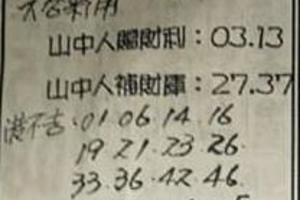 山中人賜財利：03.13
山中人補財庫：27.37
港不吉：01.06.14.16
19.21.23.26.
33.36.42.46.